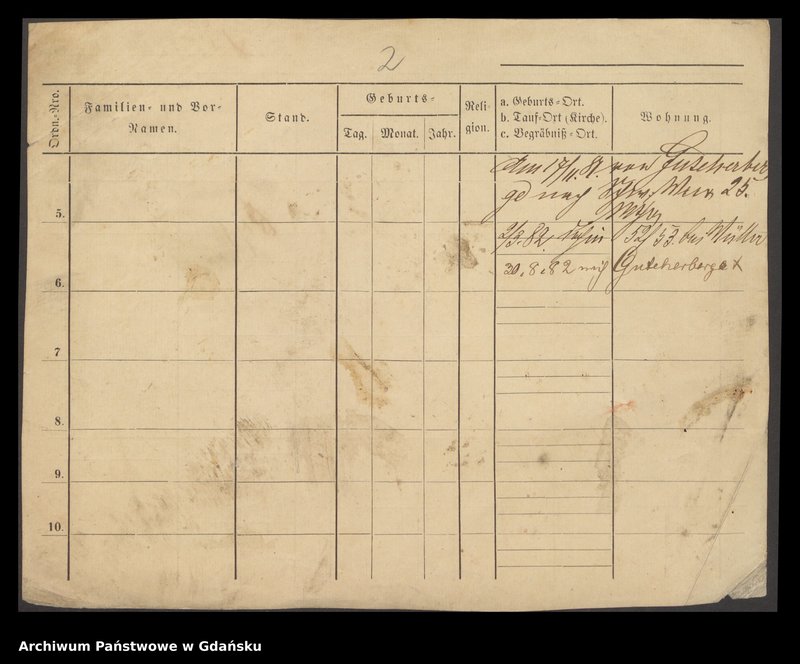 2
Ordn.-Nro.
Familien- und Vor-
Namen.
Stand.
Geburts-
Tag. Monat. Jahr.
Reli-
gion.
a. Geburts-Ort.
b. Tauf-Ort (Kirche).
c. Begräbniß-Ort.
Wohnung.
Am 17/11. 81. von Guteherber
ge nach 25.
5.
2/3. 82. 52/53. bei Müller
30. 8. 82 nach Guteherberge
6.
7
8.
9.
10.
Archiwum Państwowe w Gdańsku